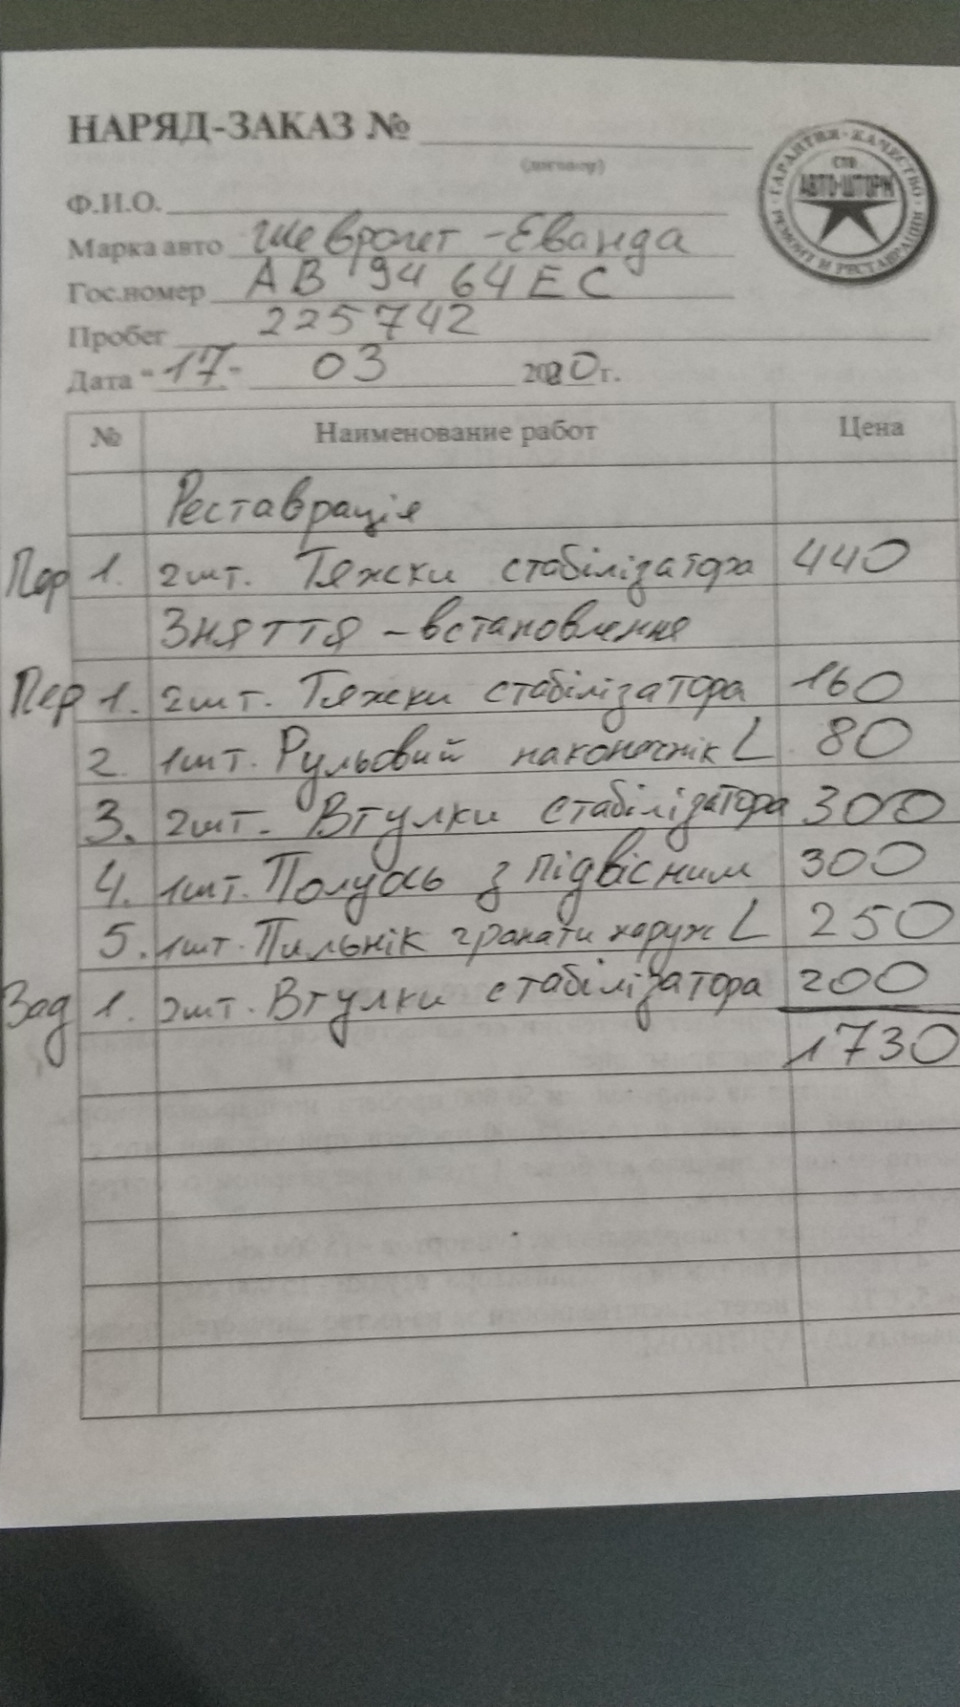 НАРЯД-ЗАКАЗ №
(договор)
ГАРАНТИЯ · КАЧЕСТВО · РЕМОНТ И РЕСТАВРАЦИЯ
СТО
АВТО-ШТОРМ
Ф.И.О.
Марка авто Шевролет - Еванда
Гос.номер АВ 94 64 ЕС
Пробег 225742
Дата "17" 03 2020г.
№ Наименование работ Цена
Реставрація
Пер 1. 2шт. Тяжки стабілізатора 440
Зняття - встановлення
Пер 1. 2шт. Тяжки стабілізатора 160
2. 1шт. Рульовий наконечнік L 80
3. 2шт. Втулки стабілізатора 300
4. 1шт. Полуось з підвісним 300
5. 1шт. Пильнік гранати наруж L 250
Зад 1. 2шт. Втулки стабілізатора 200
1730